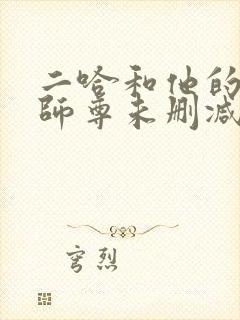 二哈和他的
师尊未删减
穹烈